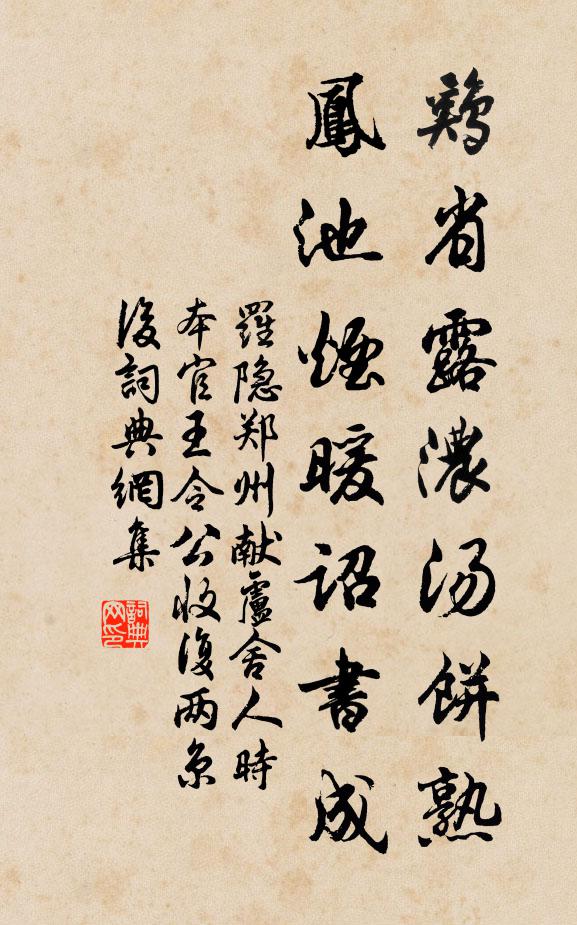 鷄省露濃湯餅熟
鳳池煙暖詔書成
羅隐郑州献盧舍人時
本官王令公收復两京
後詞典網集
詞典网印